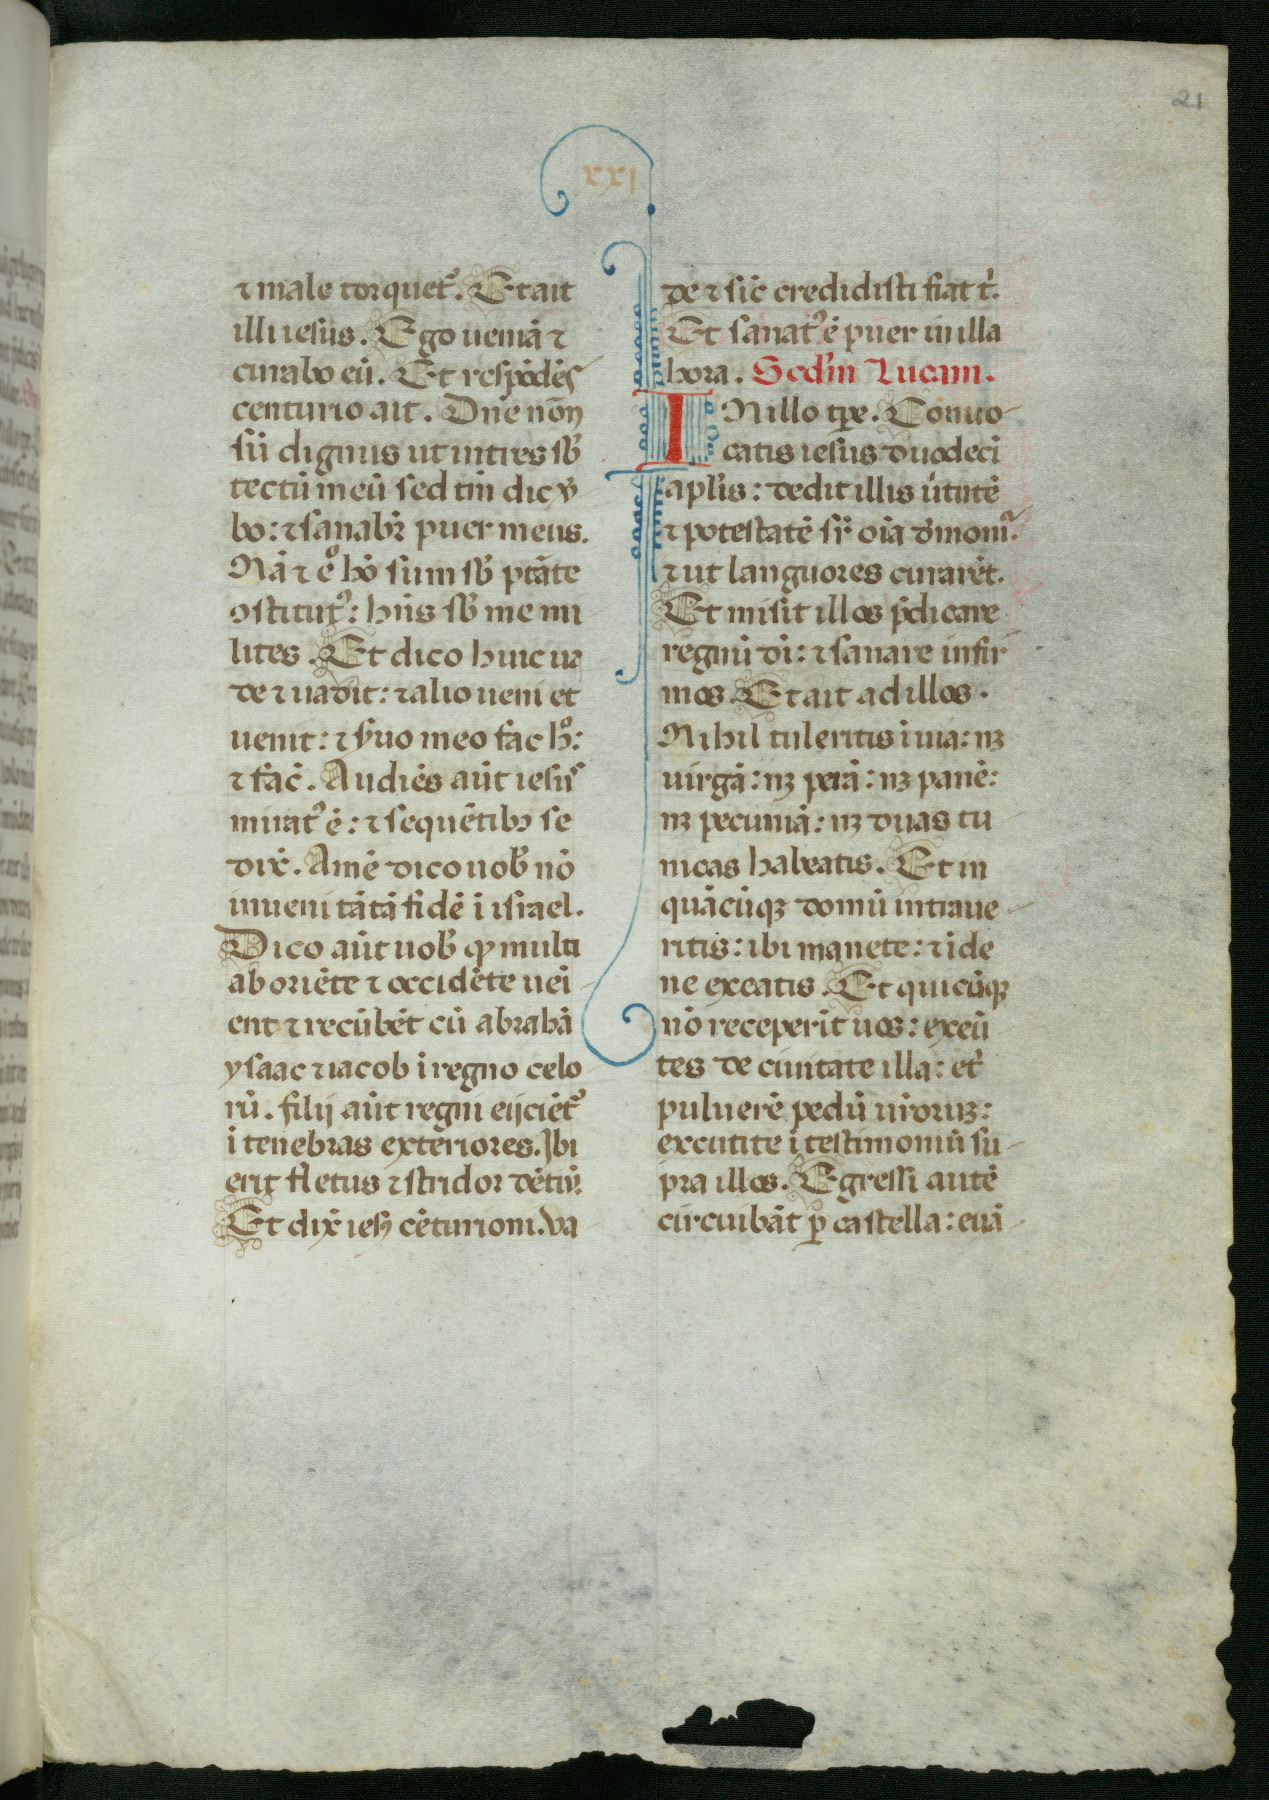 21
xxi
⁊ male torquet᷑. Et ait
illi iesus. Ego ueniā ⁊
curabo eū. Et respōdēs
centurio ait. Dn̄e non
sū dignus ut intres sb̄
tectū meū sed tm̄ dic v̄
bo: ⁊ sanabr̄ puer meus.
Nā ⁊ eº hō sum sb̄ ptāte
ꝯstitutꝰ: hn̄s sb̄ me mi
lites. Et dico huic ua
de ⁊ uadit: ⁊ alio ueni et
uenit: ⁊ s̄uo meo fac hº:
⁊ fac̄. Audiēs aūt iesus
miratꝰ ē: ⁊ sequētibꝫ se
dix̄. Amē dico uob̄ nō
inueni tātā fidē ī israel.
Dico aūt uob̄ ꝙ multi
ab oriēte ⁊ occidēte ueī
ent ⁊ recūbēt cū abrahā
ysaac ⁊ iacob ī regno celo
rū. filij aūt regni eijciēt᷑
ī tenebras exteriores. Ibi
erit fletus ⁊ stridor dētiū.
Et dix̄ iesꝫ cēturioni. Va
de ⁊ sic̄ credidisti fiat t̄.
Et sanatꝰ ē puer in illa
hora. Scd̄m Lucam.
IN illo tp̄e. Conuo
catis iesus duodecī
apl̄is: dedit illis ūtutē
⁊ potestatē sr̄ oīa dmonı᷑.
⁊ ut languores curarēt.
Et misit illos p̄dicare
regnū dī: ⁊ sanare infir
mos. Et ait ad illos.
Nihil tuleritis ī uia: nꝫ
uirgā: nꝫ perā: nꝫ panē:
nꝫ pecuniā: nꝫ duas tu
nicas habeatis. Et in
quācūqꝫ domū intraue
ritis: ibi manete: ⁊ īde
ne exeatis. Et quicūqꝫ
nō receperīt uos: exeū
tes de ciuitate illa: et̄
puluerē pedū ur̄oruꝫ:
excutite ī testimoniū su
pra illos. Egressi autē
circuibāt ꝑ castella: euā